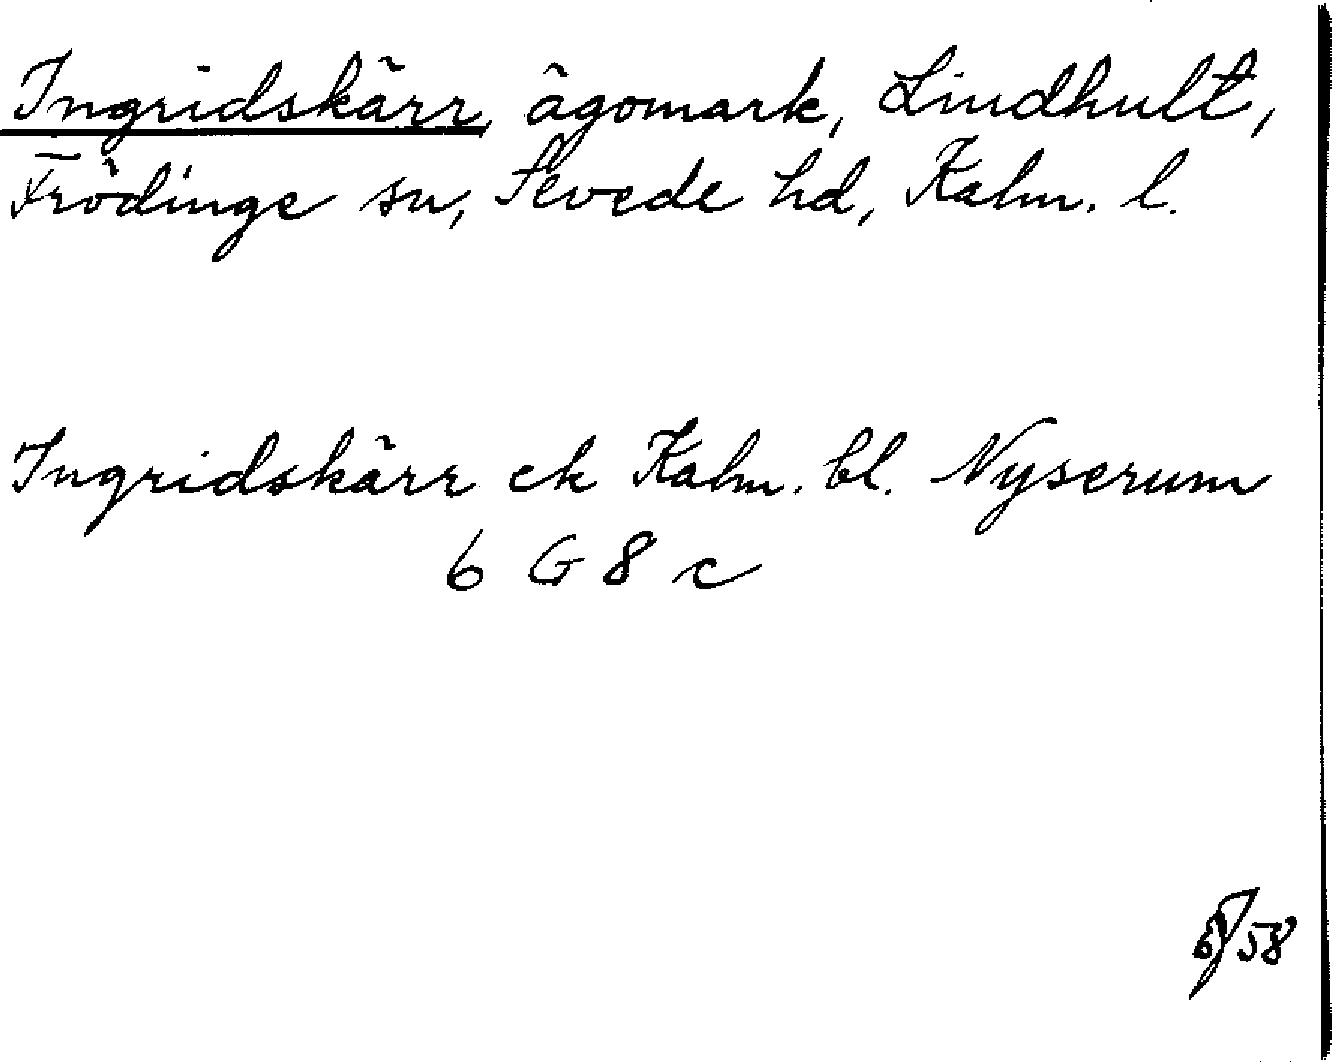 Ingridskärr, ägomark, Lindhult,
Frödinge sn, Sevede hd, Kalm. l.
Ingridskärr ek Kalm. bl. Nyserum
6 G 8 c
58